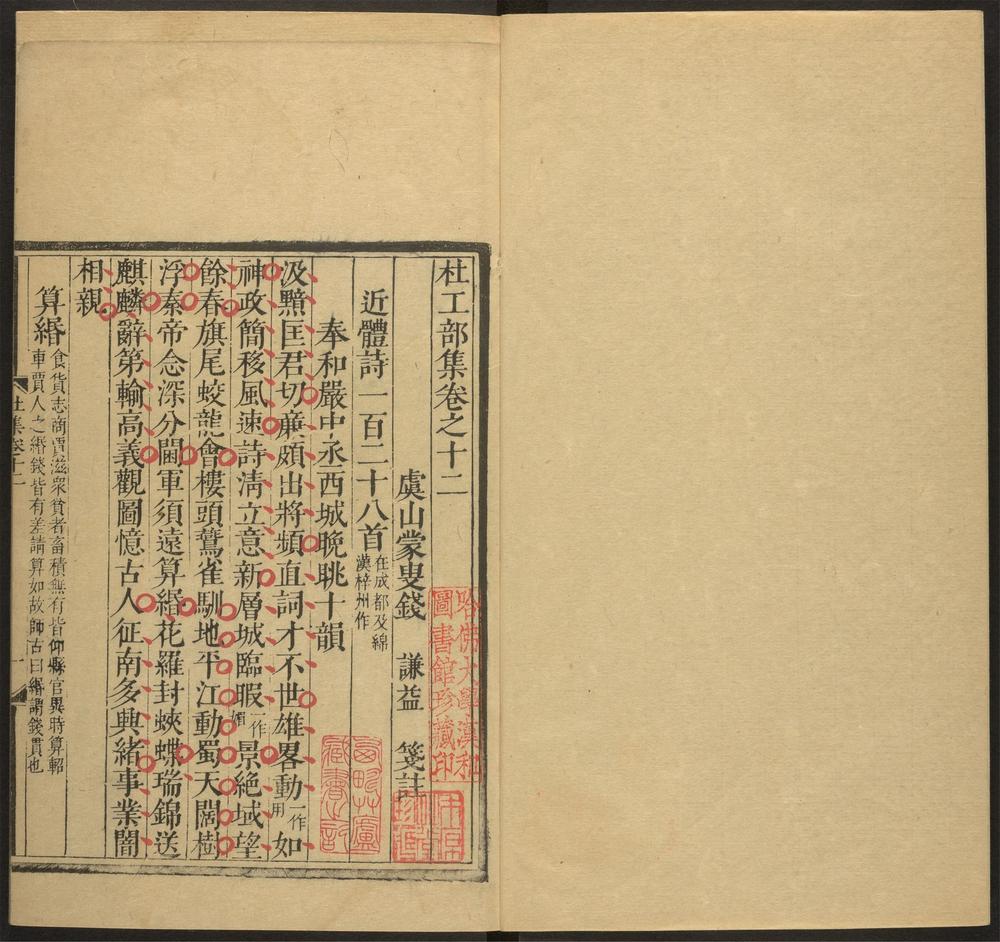 杜工部集卷之十二
虞山蒙叟錢 謙益 箋註
近體詩一百二十八首在成都及綿漢梓州作
奉和嚴中丞西城晚眺十韻
汲黯匡君切廉頗出將頻直詞才不世雄畧動一作用如
神政簡移風速詩淸立意新層城臨暇一作媚景絕域望
餘春旗尾蛟龍會樓頭鷰雀馴地平江動蜀天闊樹
浮秦帝念深分閫軍須遠算緡花羅封蛺蝶瑞錦送
麒麟辭第輸高義觀圖憶古人征南多興緒事業闇
相親
算緡食貨志商賈滋衆貧者畜積無有皆仰縣官異時算軺
車賈人之緡錢皆有差請算如故師古曰緡謂錢貫也
杜集卷十二
一
哈佛大學漢和
圖書館珍藏印